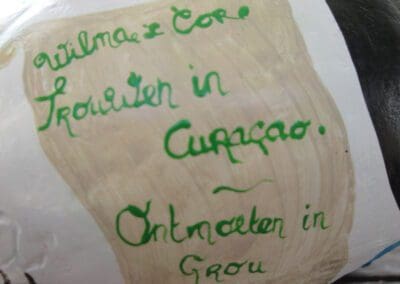 Wilma & Cor.
Trouwen in
Curaçao.
~
Ontmoeten in
Grou